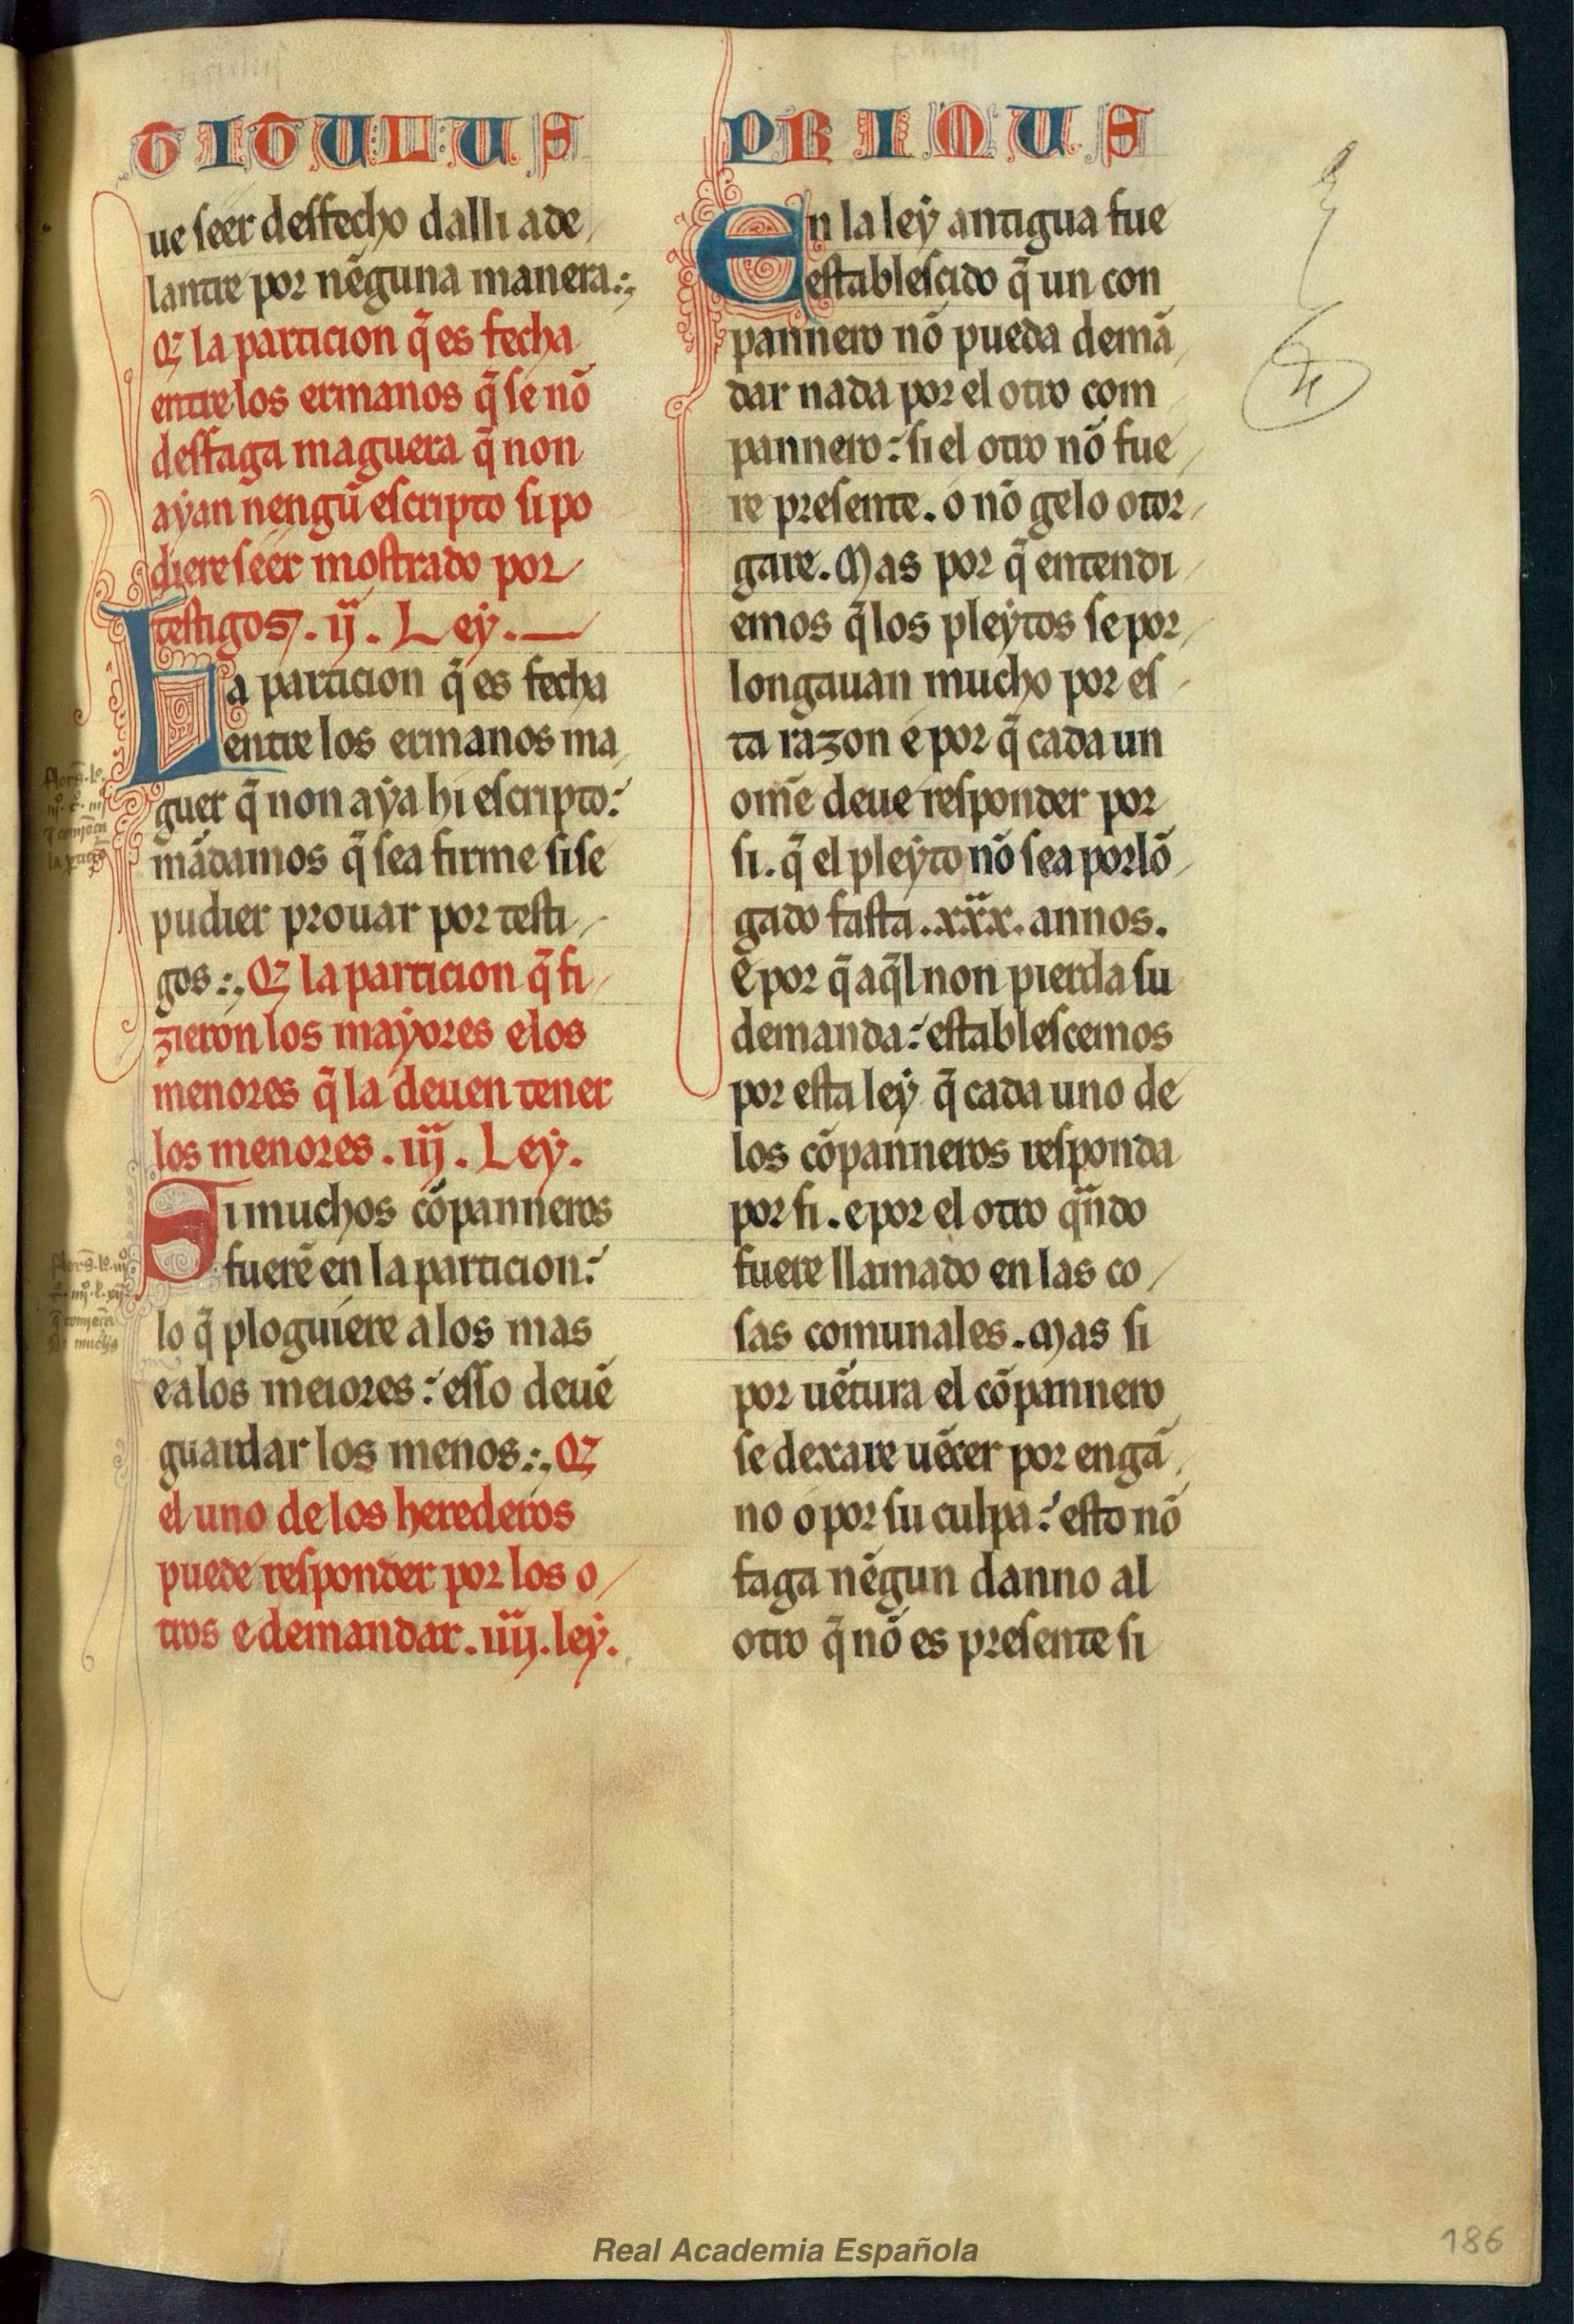 TITULUS
ue seer desfecho dalli ade
lantre por nẽguna manera.
Q̃ la particion q̃ es fecha
entre los ermanos q̃ se nõ
desfaga maguera q̃ non
ayan nengũ escripto si po
diere seer mostrado por
testigos. ij. Ley.
La particion q̃ es fecha
entre los ermanos ma
guer q̃ non aya hi escripto:
mãdamos q̃ sea firme si se
pudier prouar por testi
gos. Q̃ la particion q̃ fi
zieron los mayores e los
menores q̃ la deuen tener
los menores. iij. Ley.
Si muchos cõpanneros
fuerẽ en la particion:
lo q̃ ploguiere a los mas
e a los meiores: esso deuẽ
guardar los menos. Q̃
el uno de los herederos
puede responder por los o
tros e demandar. iiij. ley.
PRIMUS
En la ley antigua fue
establescido q̃ un con
pannero nõ pueda demã
dar nada por el otro com
pannero: si el otro nõ fue
re presente. o nõ gelo otor
gare. Mas por q̃ entendi
emos q̃ los pleytos se por
longauan mucho por es
ta razon e por q̃ cada un
om̃e deue responder por
si. q̃ el pleyto nõ sea porlõ
gado fasta .xxx. annos.
E por q̃ aq̃l non pierda su
demanda: establescemos
por esta ley q̃ cada uno de
los cõpanneros responda
por si. e por el otro qñdo
fuere llamado en las co
sas comunales. Mas si
por uẽtura el cõpannero
se dexare uẽcer por engã
no o por su culpa: esto nõ
faga nẽgun danno al
otro q̃ nõ es presente si
Real Academia Española
186